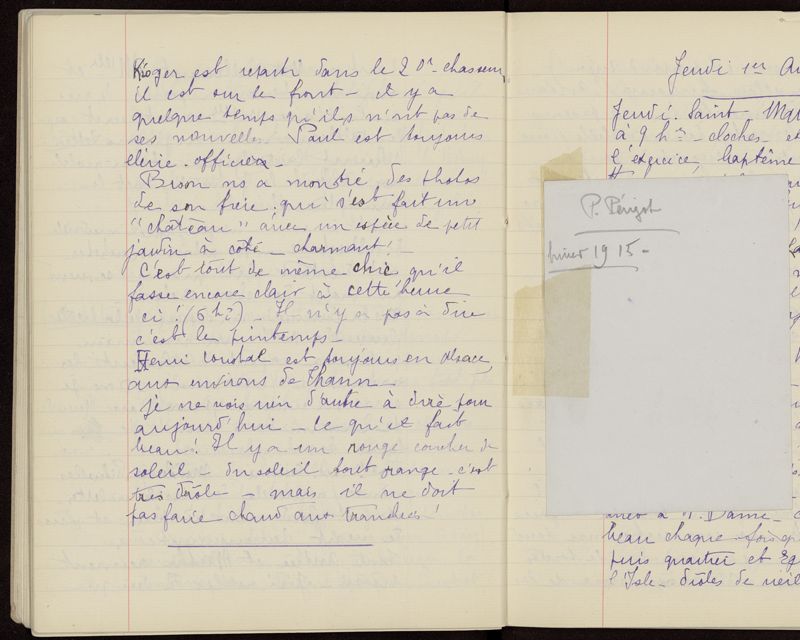 Roger est reparti dans le 20e chasseur,
il est sur le front - il y a
quelque temps qu'ils n'ont pas de
ses nouvelles. Paul est toujours
élève-officier -
Bison ns a montré des photos
de son frère, qui s'est fait un
"château" avec un espèce de petit
jardin à côté - charmant! -
C'est tout de même chic qu'il
fasse encore clair à cette heure
ci! (6h ½) - Il n'y a pas à dire
c'est le printemps -
Henri Coustal est toujours en Alsace,
aux environs de Thann -
Je ne vois rien d'autre à dire pour
aujourd'hui - Ce qu'il fait
beau! Il y a un rouge coucher de
soleil - du soleil foret orange - c'est
très drôle - mais il ne doit
pas faire chaud aux tranchées!
Jeudi 1er
Jeudi. Saint
à 9 hes - cloches
l'exercice, baptême
P. Périgot
1915 -
à N. Dame -
beau chaque fois
puis quartier et
l'Isle - drôles de